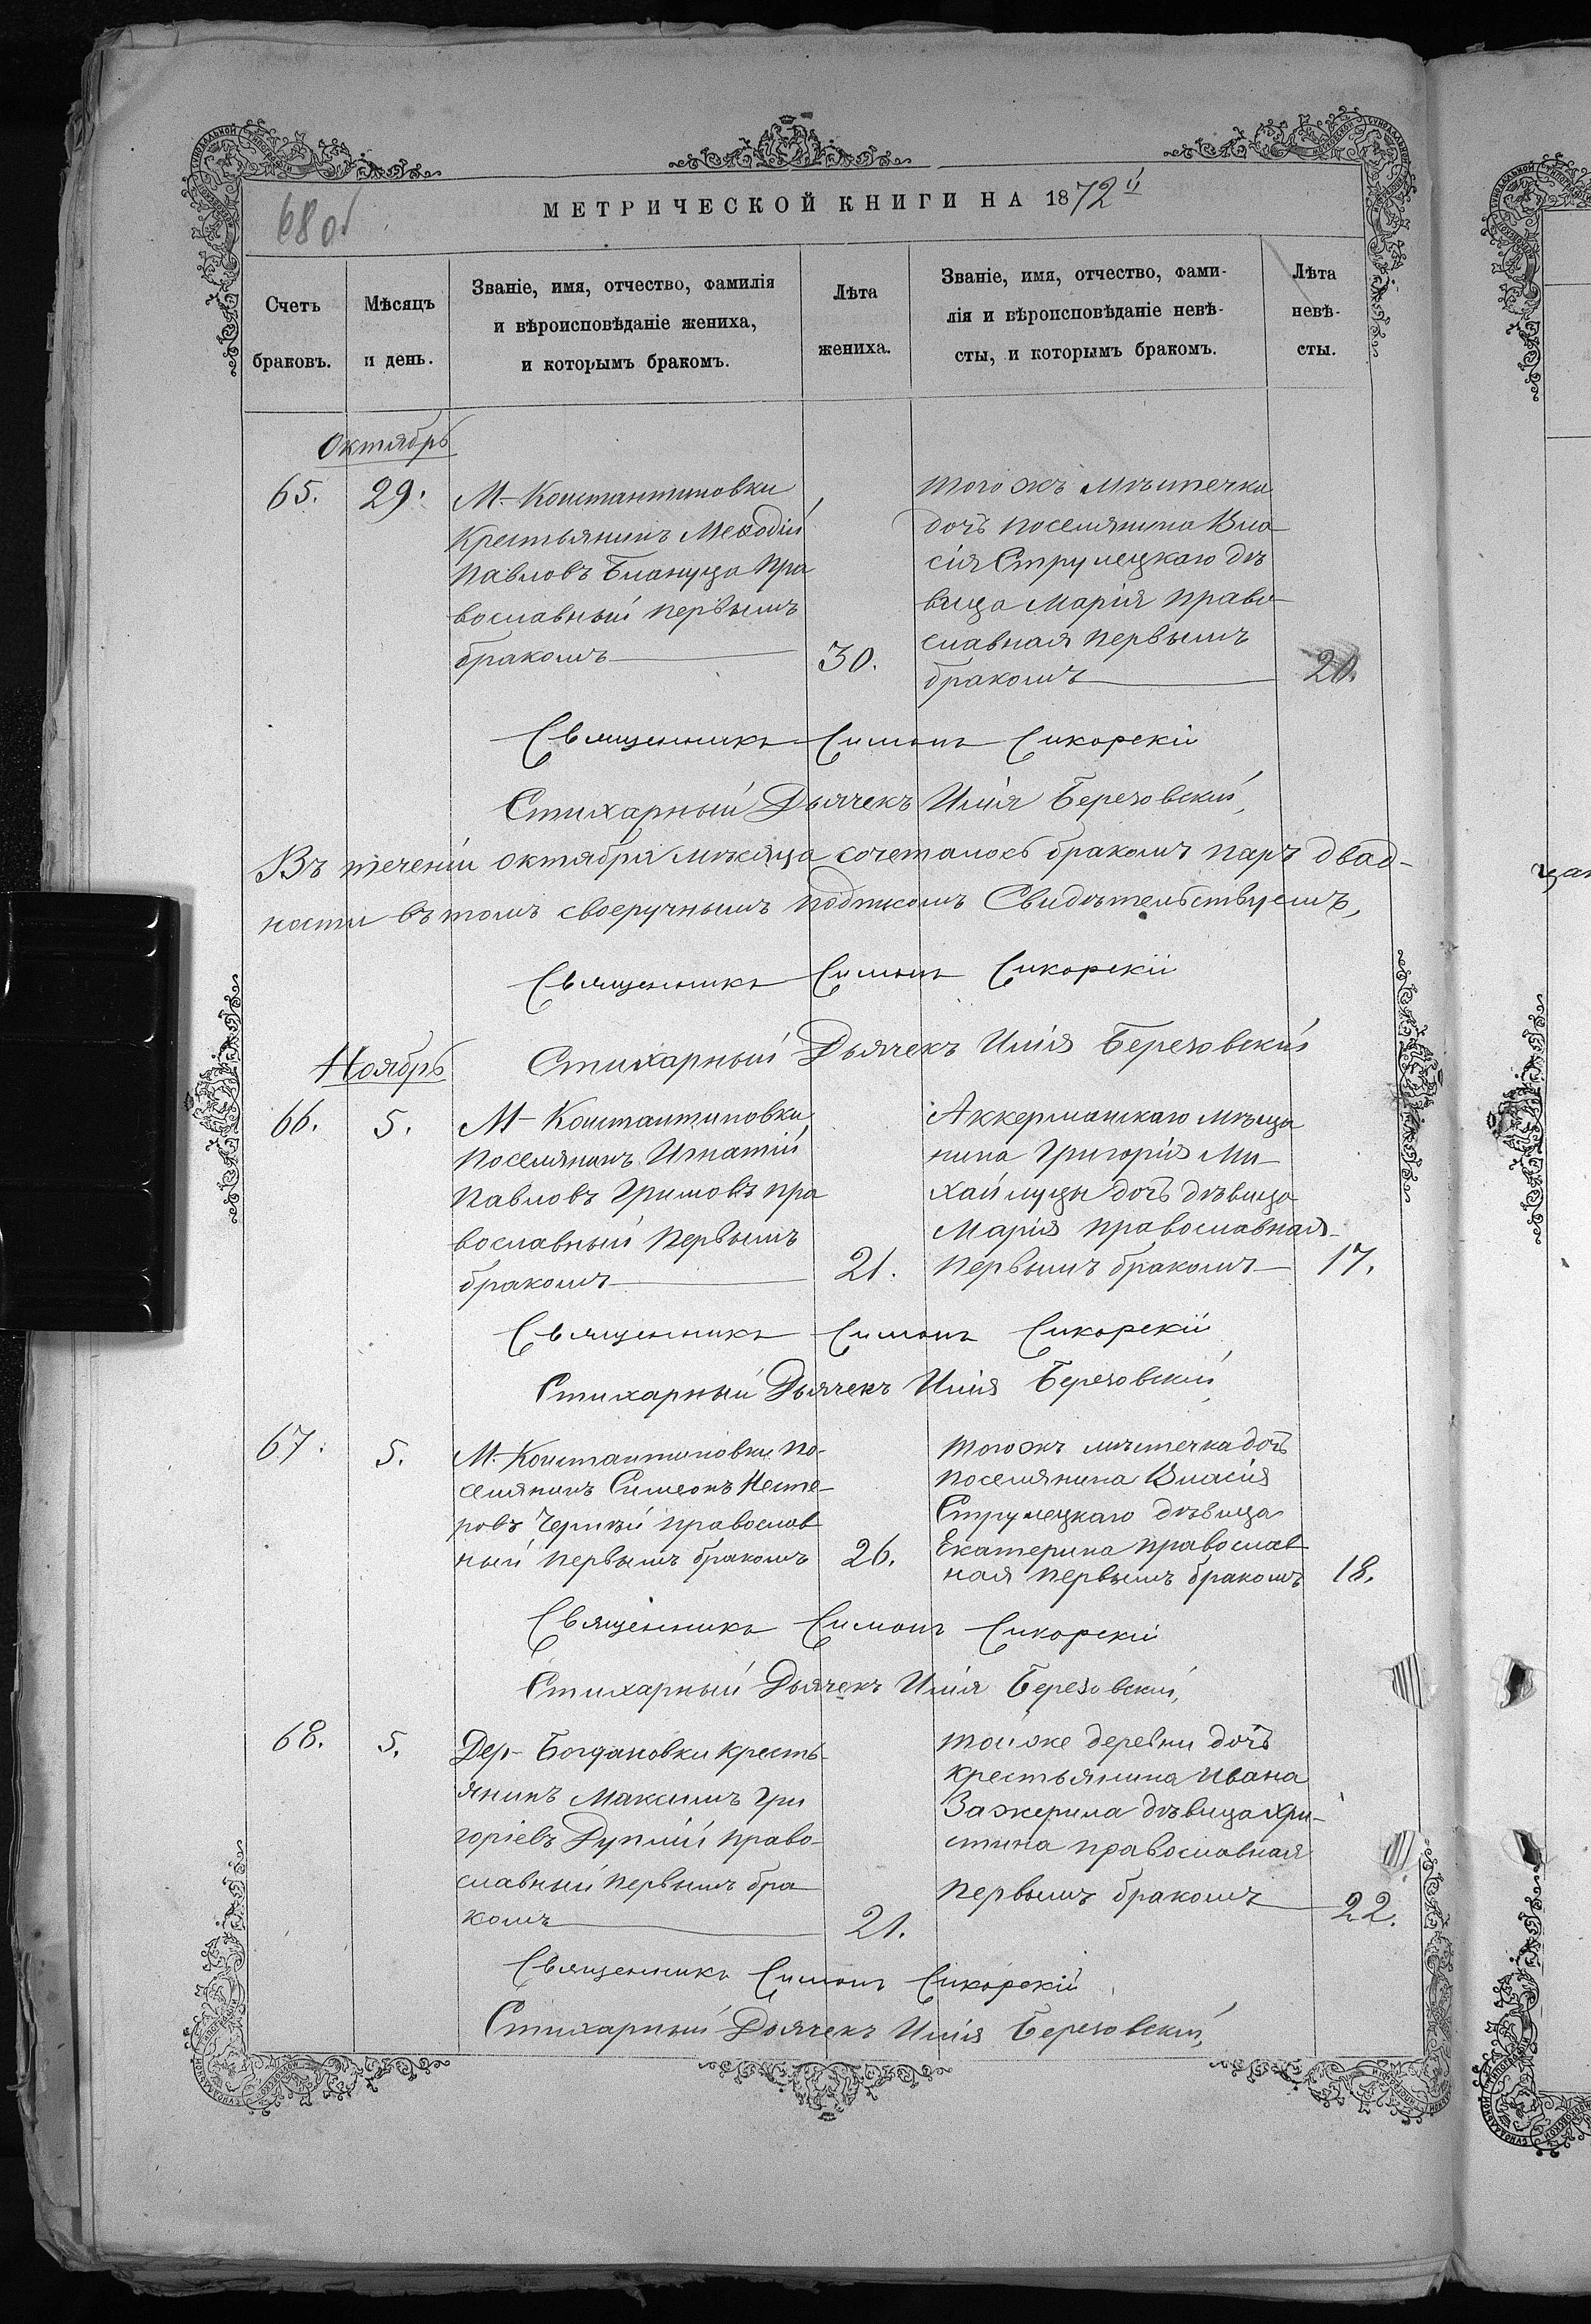 680б
МЕТРИЧЕСКОЙ КНИГИ НА 1872й
Счетъ браковъ.
Мѣсяцъ и день.
Званіе, имя, отчество, фамилія
и вѣроисповѣданіе жениха,
и которымъ бракомъ.
Лѣта жениха.
Званіе, имя, отчество, фами-
лія и вѣроисповѣданіе невѣ-
сты, и которымъ бракомъ.
Лѣта невѣ-
сты.
Октябрь
65. 29.
М- Константиновки
Крестьянинъ Меѳодій
Павловъ Блануца Пра
вославный первымъ
бракомъ
30.
того жъ мѣстечка
дочъ поселянина Вла
сія Струлецкаго дѣ
вица Марія право-
славная первымъ
бракомъ
20.
Священникъ Симонъ Сикорскій
Стихарный Дьячекъ Илія Березовскій,
Въ теченіи октября мѣсяца сочеталось бракомъ паръ двад-
ность въ томъ своеручнымъ подписомъ Свидѣтельствуемъ,
Священникъ Симонъ Сикорскій
Стихарный Дьячекъ Илія Березовскій
Ноябрь
66. 5.
М- Константиновки
поселянинъ Игнатій
Павловъ Гримовъ пра
вославный первымъ
бракомъ
21.
Аккерманскаго мѣща
нина Григорія Ми-
хайлуцы дочъ дѣвица
Марія православная
первымъ бракомъ
17.
Священникъ Симонъ Сикорскій
Стихарный Дьячекъ Илія Березовскій,
67. 5.
М- Константиновки по-
селянинъ Симеонъ Несте-
ровъ Черный православ
ный первымъ бракомъ
26.
того жъ мѣстечка дочъ
поселянина Власія
Струлецкаго дѣвица
Екатерина православ
ная первымъ бракомъ
18.
Священникъ Симонъ Сикорскій
Стихарный Дьячекъ Илія Березовскій,
68. 5.
Дер- Богдановки кресть-
янинъ Максимъ Гри
горіевъ Дуплій право-
славный первымъ бра
комъ
21.
той же деревни дочъ
крестьянина Ивана
Зажерила дѣвица Хри-
стина православная
первымъ бракомъ
22.
Священникъ Симонъ Сикорскій
Стихарный Дьячекъ Илія Березовскій,